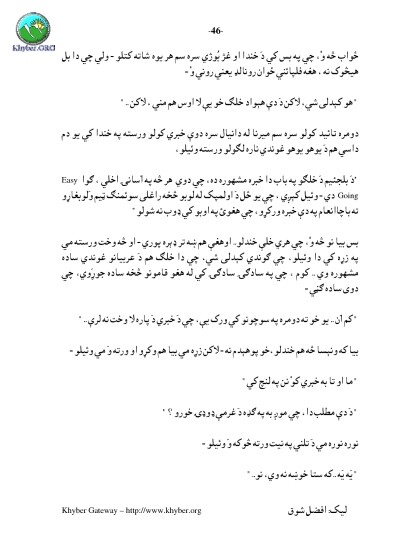 -46-
Khyber.ORG
ځواب څه وُ، چي په بس کي دَ خندا او غږ بُوږي سره سم هر يوه شاته کتلو - ولي چي دا بل
هيڅوک نه ، هغه فلپائني ځوان رونالډ يعني روني وُ -
"هو کېدلی شي، لاکن دَ دې هېواد خلګ خو يې لا اوس هم مني ، لاکن.. "
دومره تائيد کولو سره سم ميرنا له دانيال سره دوې خبري کولو ورسته په خندا کي يو دم
دا سي هم دَ يوهو يوهو غوندي ناره لګولو ورسته وئيلو ،
"دَ بلجئيم دَ خلګو په باب دا خبره مشهوره ده، چي دوي هر څه په آسانۍ اخلي ، ګوا Easy
Going دي - وئيل کېږي ، چي يو ځل دَ اولمپک له لوبو څخه راغلی سوئمنګ ټيم ولوبغاړو
ته باچا انعام په دې خبره ورکړو ، چي هغوئ په اوبو کي ډوب نه شولو "
بس بيا نو څه وُ، چي هري خلې خندلو.. اوهغې هم ښه تر ډېره پوري - او څه وخت ورسته مي
په زړه کي دا وئيلو ، چي ګوندي کېدلی شي، چي دا خلګ هم دَ عربيانو غوندي ساده
مشهوره وي .. کوم ، چي په سادګۍ سادګۍ کي له هغو قامونو څخه ساده جوړوي، چي
دوی ساده ګڼي -
"کم آن.. يو خو ته دومره په سوچونو کي ورک يې، چي دَ خبري دَ پاره لا وخت نه لرې.. "
بيا که ونيسا څه هم خندلو، خو پوهېدم نه - لاکن زړه مي بيا هم وکړو او ورته وَ مي وئيلو -
"ما او تا به خبري کوُ نن په لنچ کي "
"دَ دې مطلب دا ، چي موږ به په ګډه دَ غرمې ډوډۍ خورو ؟ "
نوره نوره مي دَ تلني په نيت ورته څو که وَ وئيلو -
"يَه يَه..که ستا خوښه نه وي، نو.. "
Khyber Gateway – http://www.khyber.org
ليک: افضل شوق